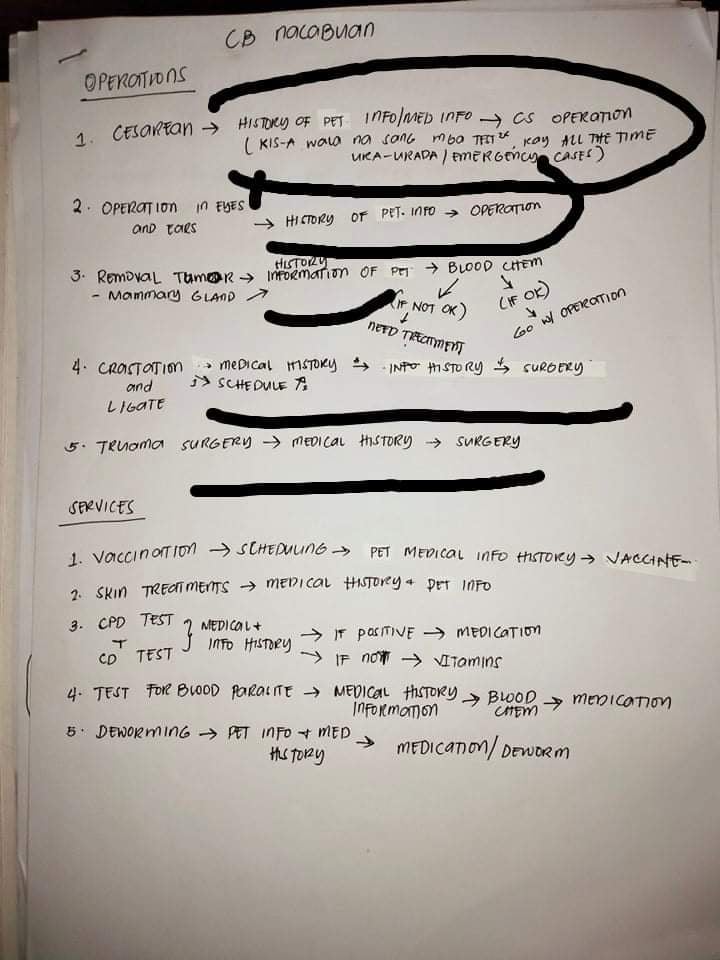 CB nacabuan
OPERATIONS
1. CESAREAN → HISTORY OF PET INFO/MED INFO → CS OPERATION
(KIS-A wala na sang mga TEST², KAY ALL THE TIME
URA-URADA/EMERGENCY CASES)
2. OPERATION IN EYES
and EARS → HISTORY OF PET. INFO → OPERATION
HISTORY
3. REMOVAL TUMOR → INFORMATION OF PET → BLOOD CHEM
- MAMMARY GLAND ↗
(IF NOT OK) (IF OK)
NEED TREATMENT GO W/ OPERATION
4. CRASTATION → MEDICAL HISTORY → INFO HISTORY → SURGERY
and → SCHEDULE
LIGATE
5. TRUOMA SURGERY → MEDICAL HISTORY → SURGERY
SERVICES
1. VACCINATION → SCHEDULING → PET MEDICAL INFO HISTORY → VACCINE
2. SKIN TREATMENTS → MEDICAL HISTORY + PET INFO
3. CPD TEST } MEDICAL +
+ INFO HISTORY → IF POSITIVE → MEDICATION
CD TEST → IF NOT → VITAMINS
4. TEST FOR BLOOD PARASITE → MEDICAL HISTORY → BLOOD → MEDICATION
INFORMATION CHEM
5. DEWORMING → PET INFO + MED → MEDICATION/DEWORM
HISTORY